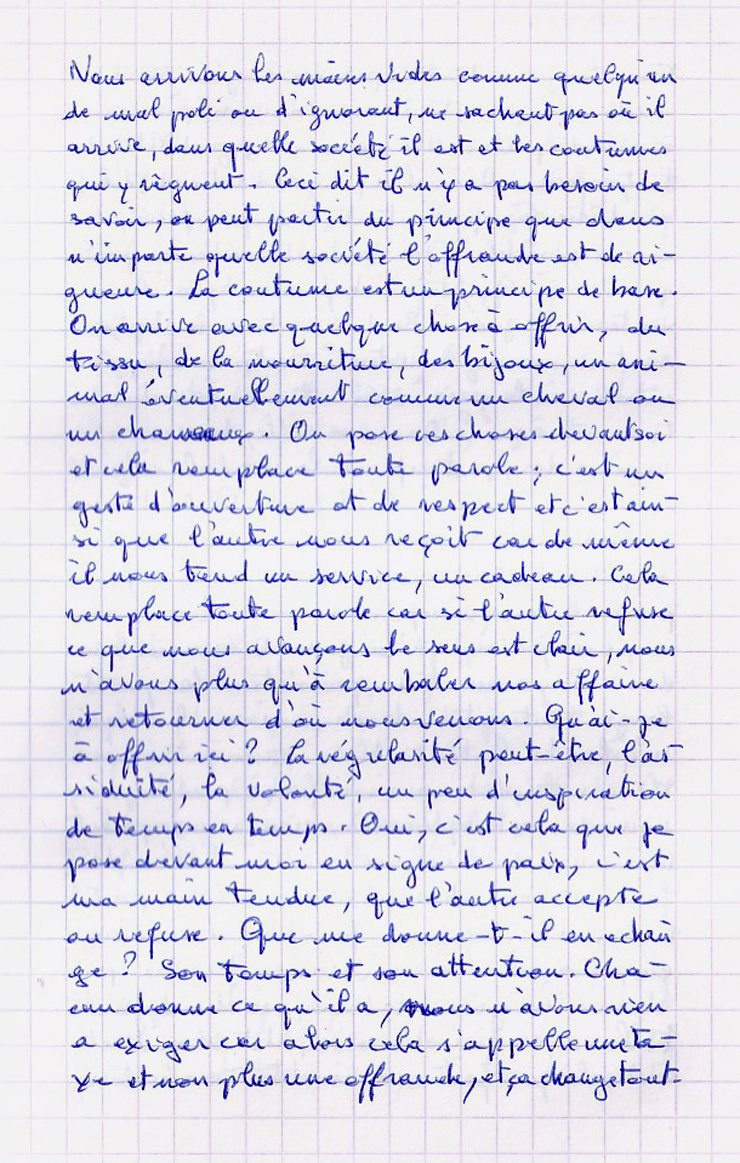 Nous arrivons les mains vides comme quelqu'un
de mal poli ou d'ignorant, ne sachant pas où il
arrive, dans quelle société il est et les coutumes
qui y règnent. Ceci dit il n'y a pas besoin de
savoir, on peut partir du principe que dans
n'importe quelle société l'offrande est de ri-
gueure. La coutume est un principe de base.
On arrive avec quelque chose à offrir, du
tissu, de la nourriture, des bijoux, un ani-
mal éventuellement comme un cheval ou
un chameau. On pose ces choses devant soi
et cela remplace toute parole ; c'est un
geste d'ouverture et de respect et c'est ain-
si que l'autre nous reçoit car de même
il nous tend un service, un cadeau. Cela
remplace toute parole car si l'autre refuse
ce que nous avançons le sens est clair, nous
n'avons plus qu'à remballer nos affaire
et retourner d'où nous venons. Qu'ai-je
à offrir ici ? La régularité peut-être, l'as
siduité, la volonté, un peu d'inspiration
de temps en temps. Oui, c'est cela que je
pose devant moi en signe de paix, c'est
ma main tendue, que l'autre accepte
ou refuse. Que me donne-t-il en échan
ge ? Son temps et son attention. Cha-
cun donne ce qu'il a, nous n'avons rien
a exiger car alors cela s'appelle une ta-
xe et non plus une offrande, et ça change tout.